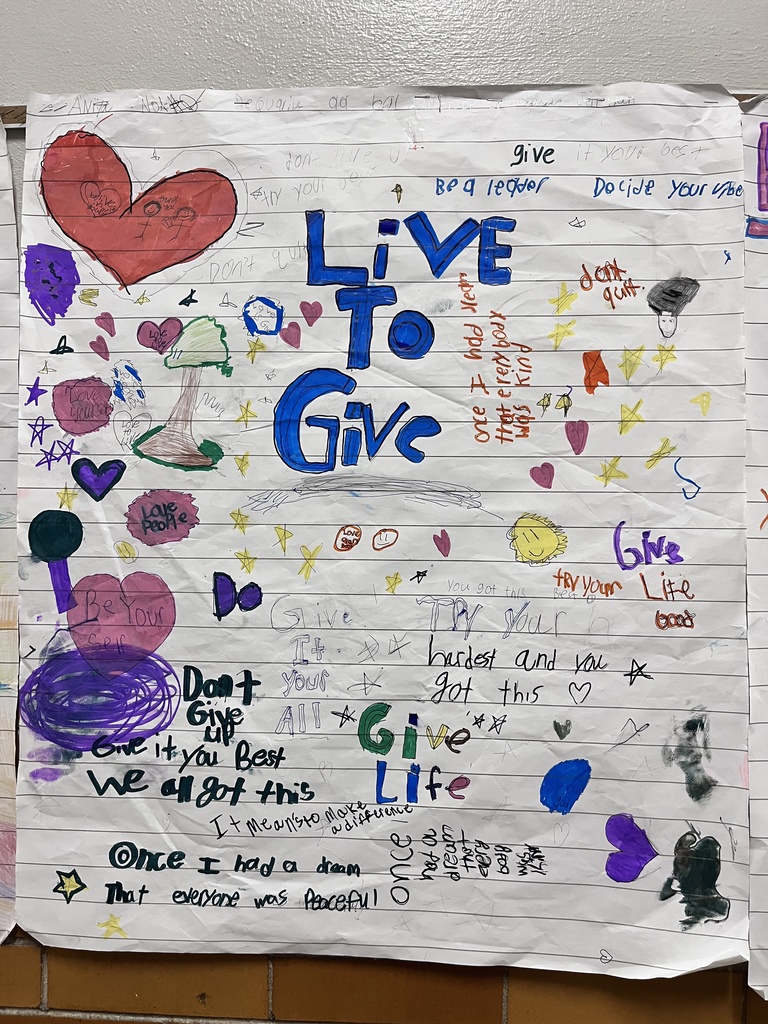 give it your best
don't give u
try your bes
Be a leader Docide your vibe
Don't quit
LiVE
To
Give
once I had dream
that everybody
was kind
dont
quit.
Love
People
Be Your
Self
Do
Give
It
your
All
You got this
Give
try your best
Life
good
TRY Your h
hardest and you
got this
Don't
Give
up
Give it you Best
We all got this
Give
Life
It means to make
a difference
Once I had a dream
That everyone was Peaceful
once
had a
dream
that
every
body
was